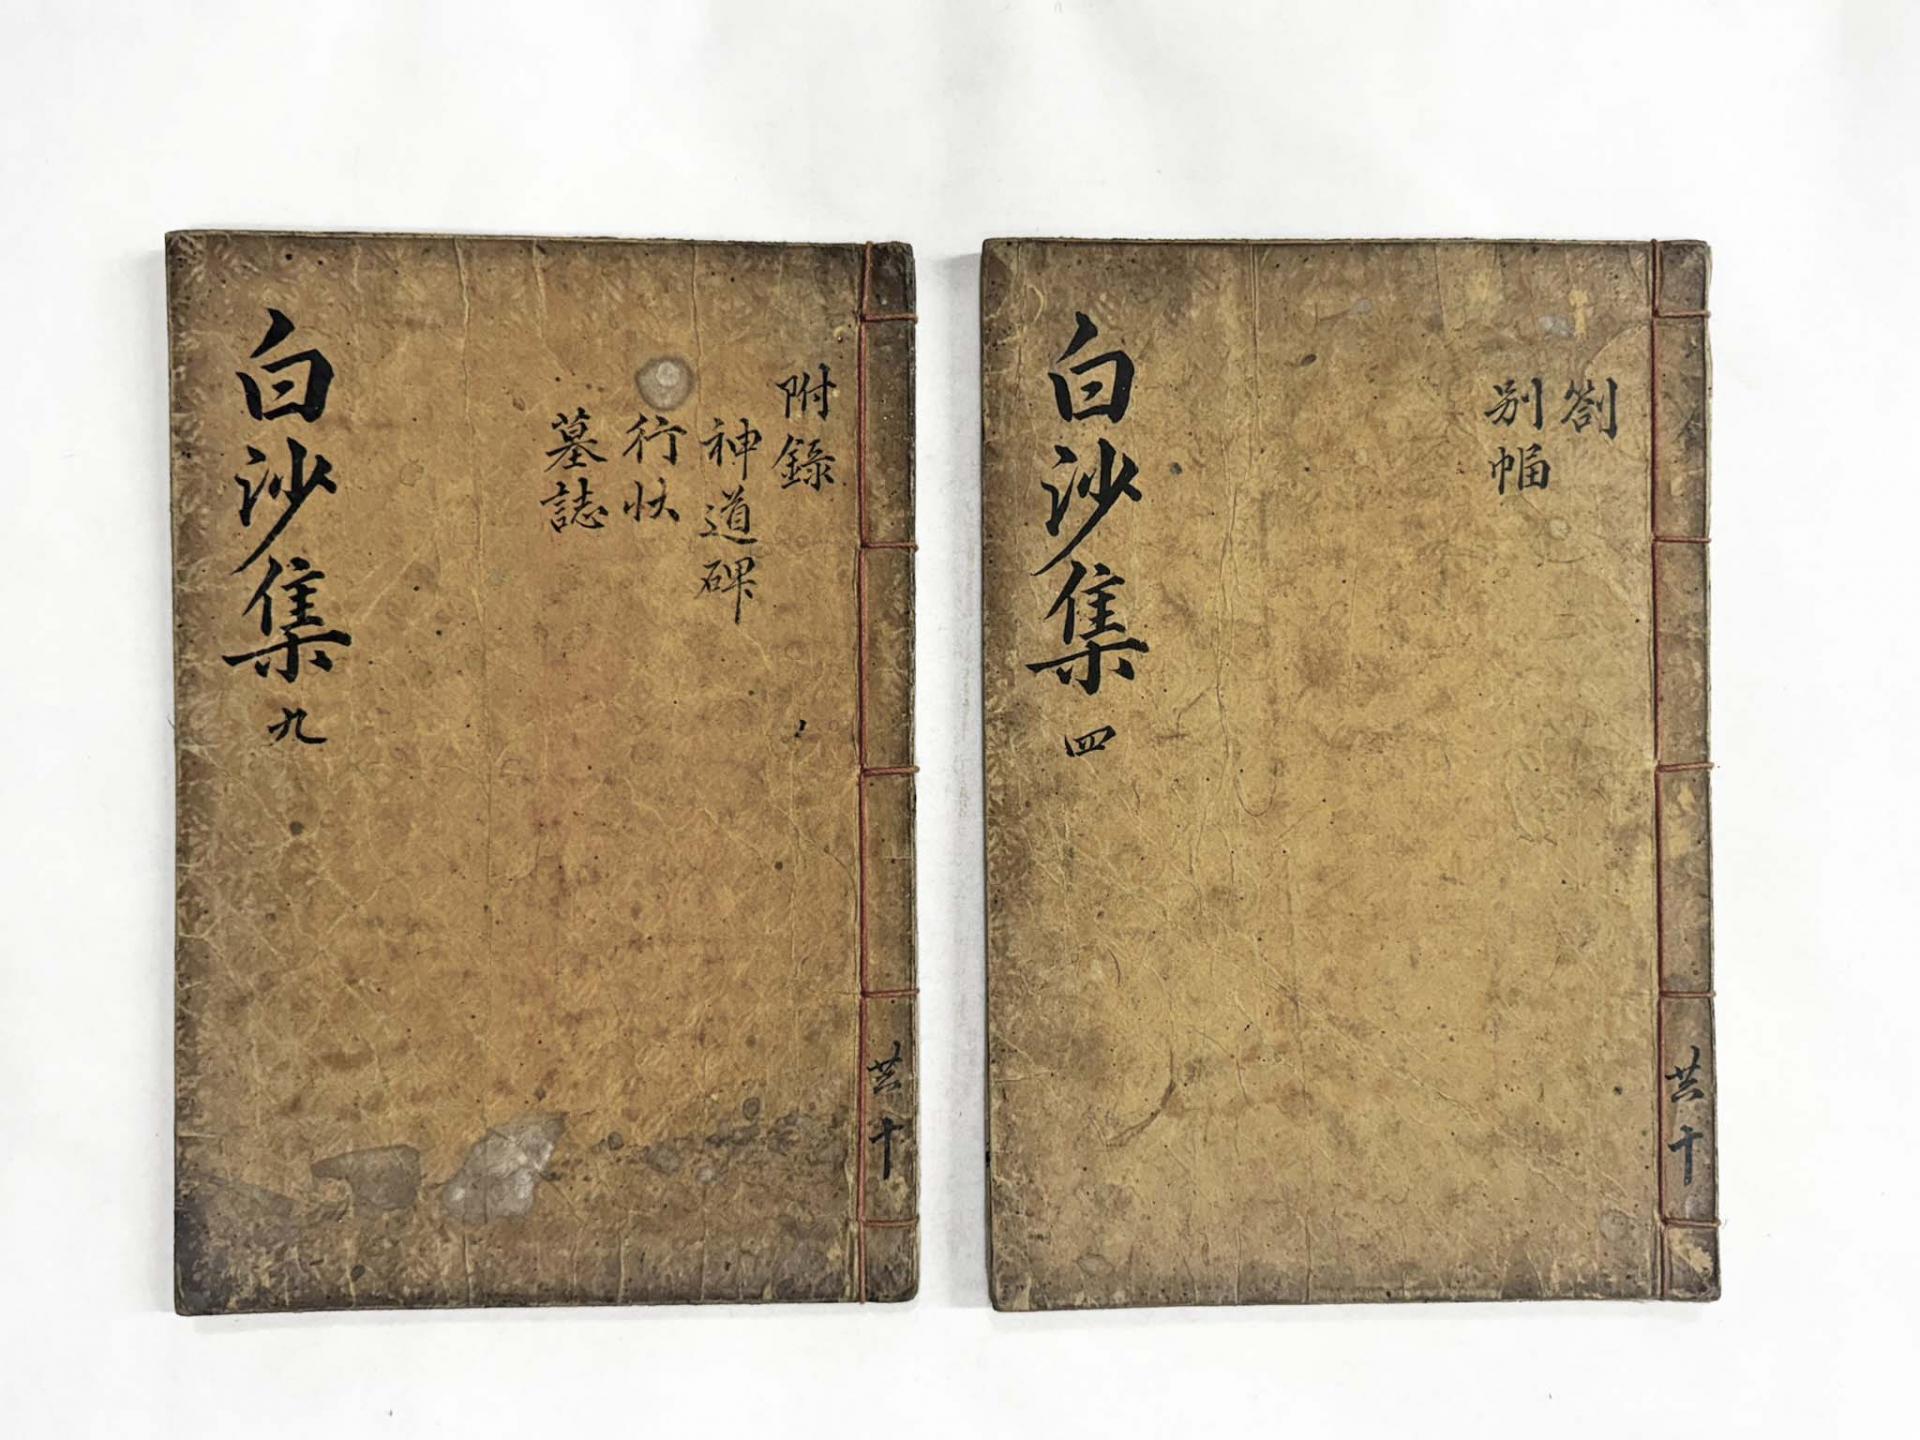 附錄
神道碑
行狀
墓誌
白沙集 九
共十
劄
別幅
白沙集 四
共十